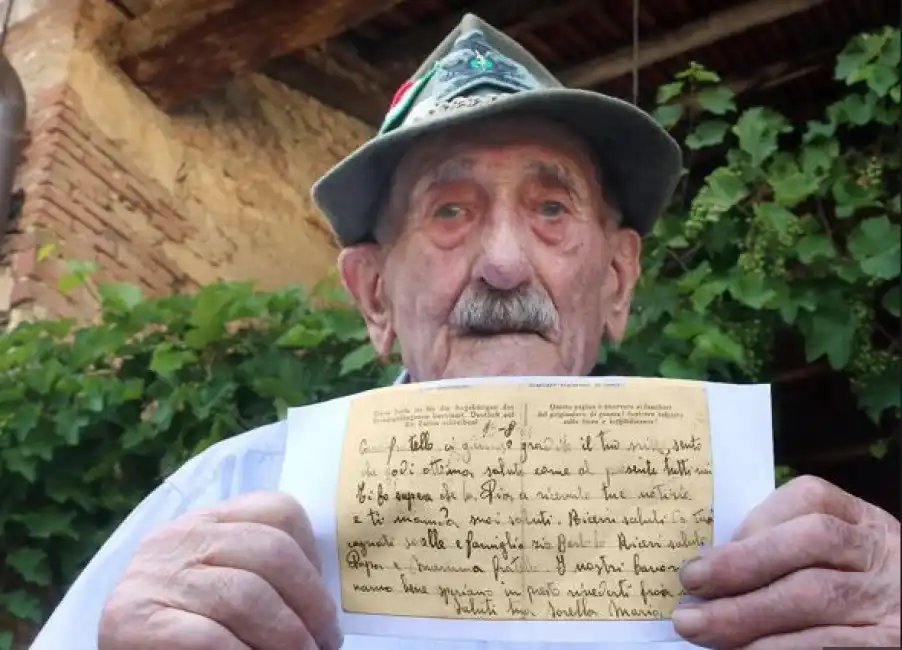 Diese Seite ist für die Angehörigen des
Kriegsgefangenen bestimmt. Deutlich auf
die Zeilen schreiben!
Questa pagina è riservata ai familiari
del prigioniero di guerra! Scrivere soltanto
sulle linee e leggibilmente!
fratello ci giunse gradito il tuo sento
che godi ottima salute come al presente tutti noi
Ti fo sapere che la Pia a ricevuto tue notizie
e ti manda suoi saluti. Ricevi saluti
cognati sorelle e famiglia zio Ricevi saluti
Papa e Mamma fratello. I nostri
vanno bene speriamo in presto rivederti
Saluti tua Sorella Maria.